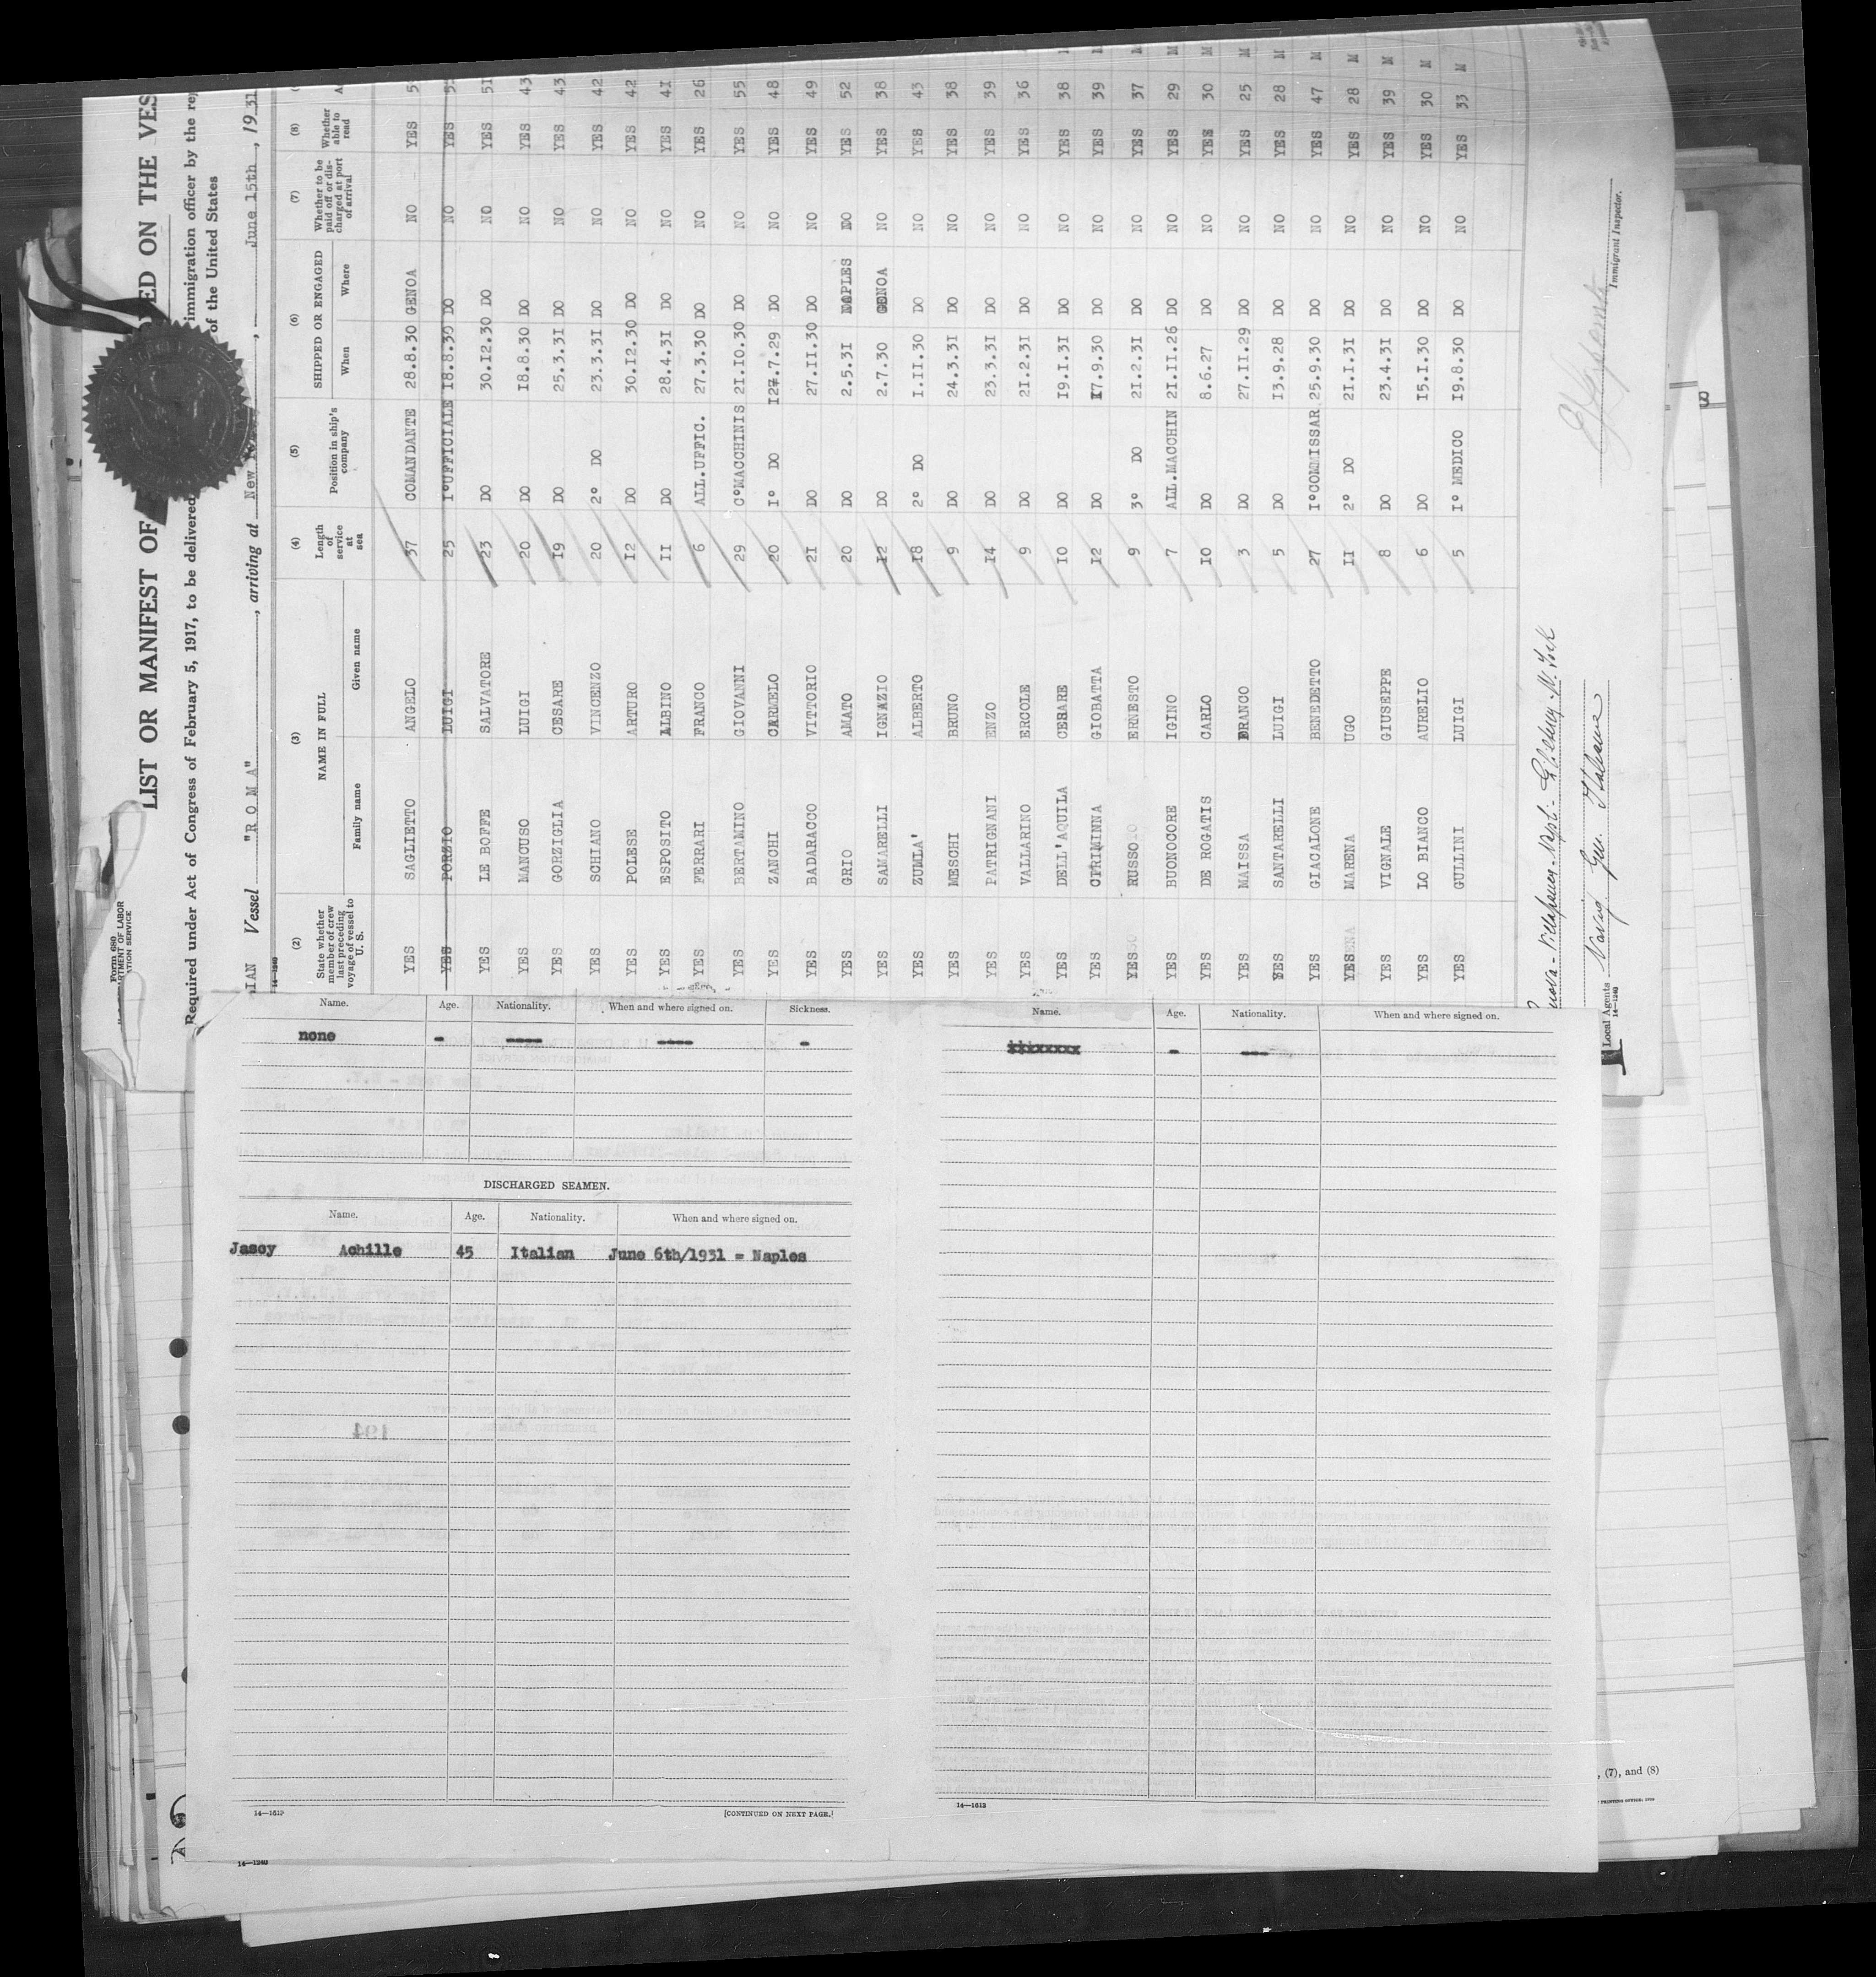 Form 680
LIST OR MANIFEST OF
ED ON THE VES
Required under Act of Congress of February 5, 1917, to be delivered
immigration officer by the rep
of the United States
Vessel "ROMA", arriving at New
June 15th, 1931
14—1240
(2) (3) (4) (5) (6) (7) (8)
State whether member of crew last preceding voyage of vessel to U. S.
NAME IN FULL
Family name Given name
Length of service at sea
Position in ship's company
SHIPPED OR ENGAGED
When Where
Whether to be paid off or discharged at port of arrival
Whether able to read
YES SAGLIETTO ANGELO 37 COMANDANTE 28.8.30 GENOA NO YES
YES PORZIO LUIGI 25 I°UFFICIALE 18.8.30 DO NO YES
YES LE BOFFE SALVATORE 23 DO 30.12.30 DO NO YES 51
YES MANCUSO LUIGI 20 DO 18.8.30 DO NO YES 43
YES GORZIGLIA CESARE 19 DO 25.3.31 DO NO YES 43
YES SCHIANO VINCENZO 20 2° DO 23.3.31 DO NO YES 42
YES POLESE ARTURO 12 DO 30.12.30 DO NO YES 42
YES ESPOSITO ALBINO 11 DO 28.4.31 DO NO YES 41
YES FERRARI FRANCO 6 ALL.UFFIC. 27.3.30 DO NO YES 26
YES BERTAMINO GIOVANNI 29 C°MACCHINIS 21.10.30 DO NO YES 55
YES ZANCHI CARMELO 20 I° DO 127.7.29 DO NO YES 48
YES BADARACCO VITTORIO 21 DO 27.11.30 DO NO YES 49
YES GRIO AMATO 20 DO 2.5.31 NAPLES NO YES 52
YES SAMARELLI IGNAZIO 12 DO 2.7.30 GENOA NO YES 38
YES ZUMLA' ALBERTO 18 2° DO 1.11.30 DO NO YES 43
YES MESCHI BRUNO 9 DO 24.3.31 DO NO YES 38
YES PATRIGNANI ENZO 14 DO 23.3.31 DO NO YES 39
YES VALLARINO ERCOLE 9 DO 21.2.31 DO NO YES 36
YES DELL'AQUILA CESARE 10 DO 19.1.31 DO NO YES 38
YES CIRIMINNA GIOBATTA 12 DO 17.9.30 DO NO YES 39
YES RUSSO ERNESTO 9 3° DO 21.2.31 DO NO YES 37
YES BUONOCORE IGINO 7 ALL.MACCHIN 21.11.26 DO NO YES 29 M
YES DE ROGATIS CARLO 10 DO 8.6.27 DO NO YES 30 M
YES MAISSA FRANCO 3 DO 27.11.29 DO NO YES 25 M
YES SANTARELLI LUIGI 5 DO 13.9.28 DO NO YES 28 M
YES GIACALONE BENEDETTO 27 I°COMMISSAR 25.9.30 DO NO YES 47 M
YES MARENA UGO 11 2° DO 21.1.31 DO NO YES 28 M
YES VIGNALE GIUSEPPE 8 DO 23.4.31 DO NO YES 39 M
YES LO BIANCO AURELIO 6 DO 15.1.30 DO NO YES 30 M
YES GULLINI LUIGI 5 I° MEDICO 19.8.30 DO NO YES 33 M
Local Agents Navig Gen. Italiana
14—1240
Immigrant Inspector.
Name. Age. Nationality. When and where signed on. Sickness.
none - ---- ---- -
DISCHARGED SEAMEN.
Name. Age. Nationality. When and where signed on.
Jascy Achille 45 Italian June 6th/1931 = Naples
14—1613
[CONTINUED ON NEXT PAGE.]
14—1240
Name. Age. Nationality. When and where signed on.
14—1613
, (7), and (8)